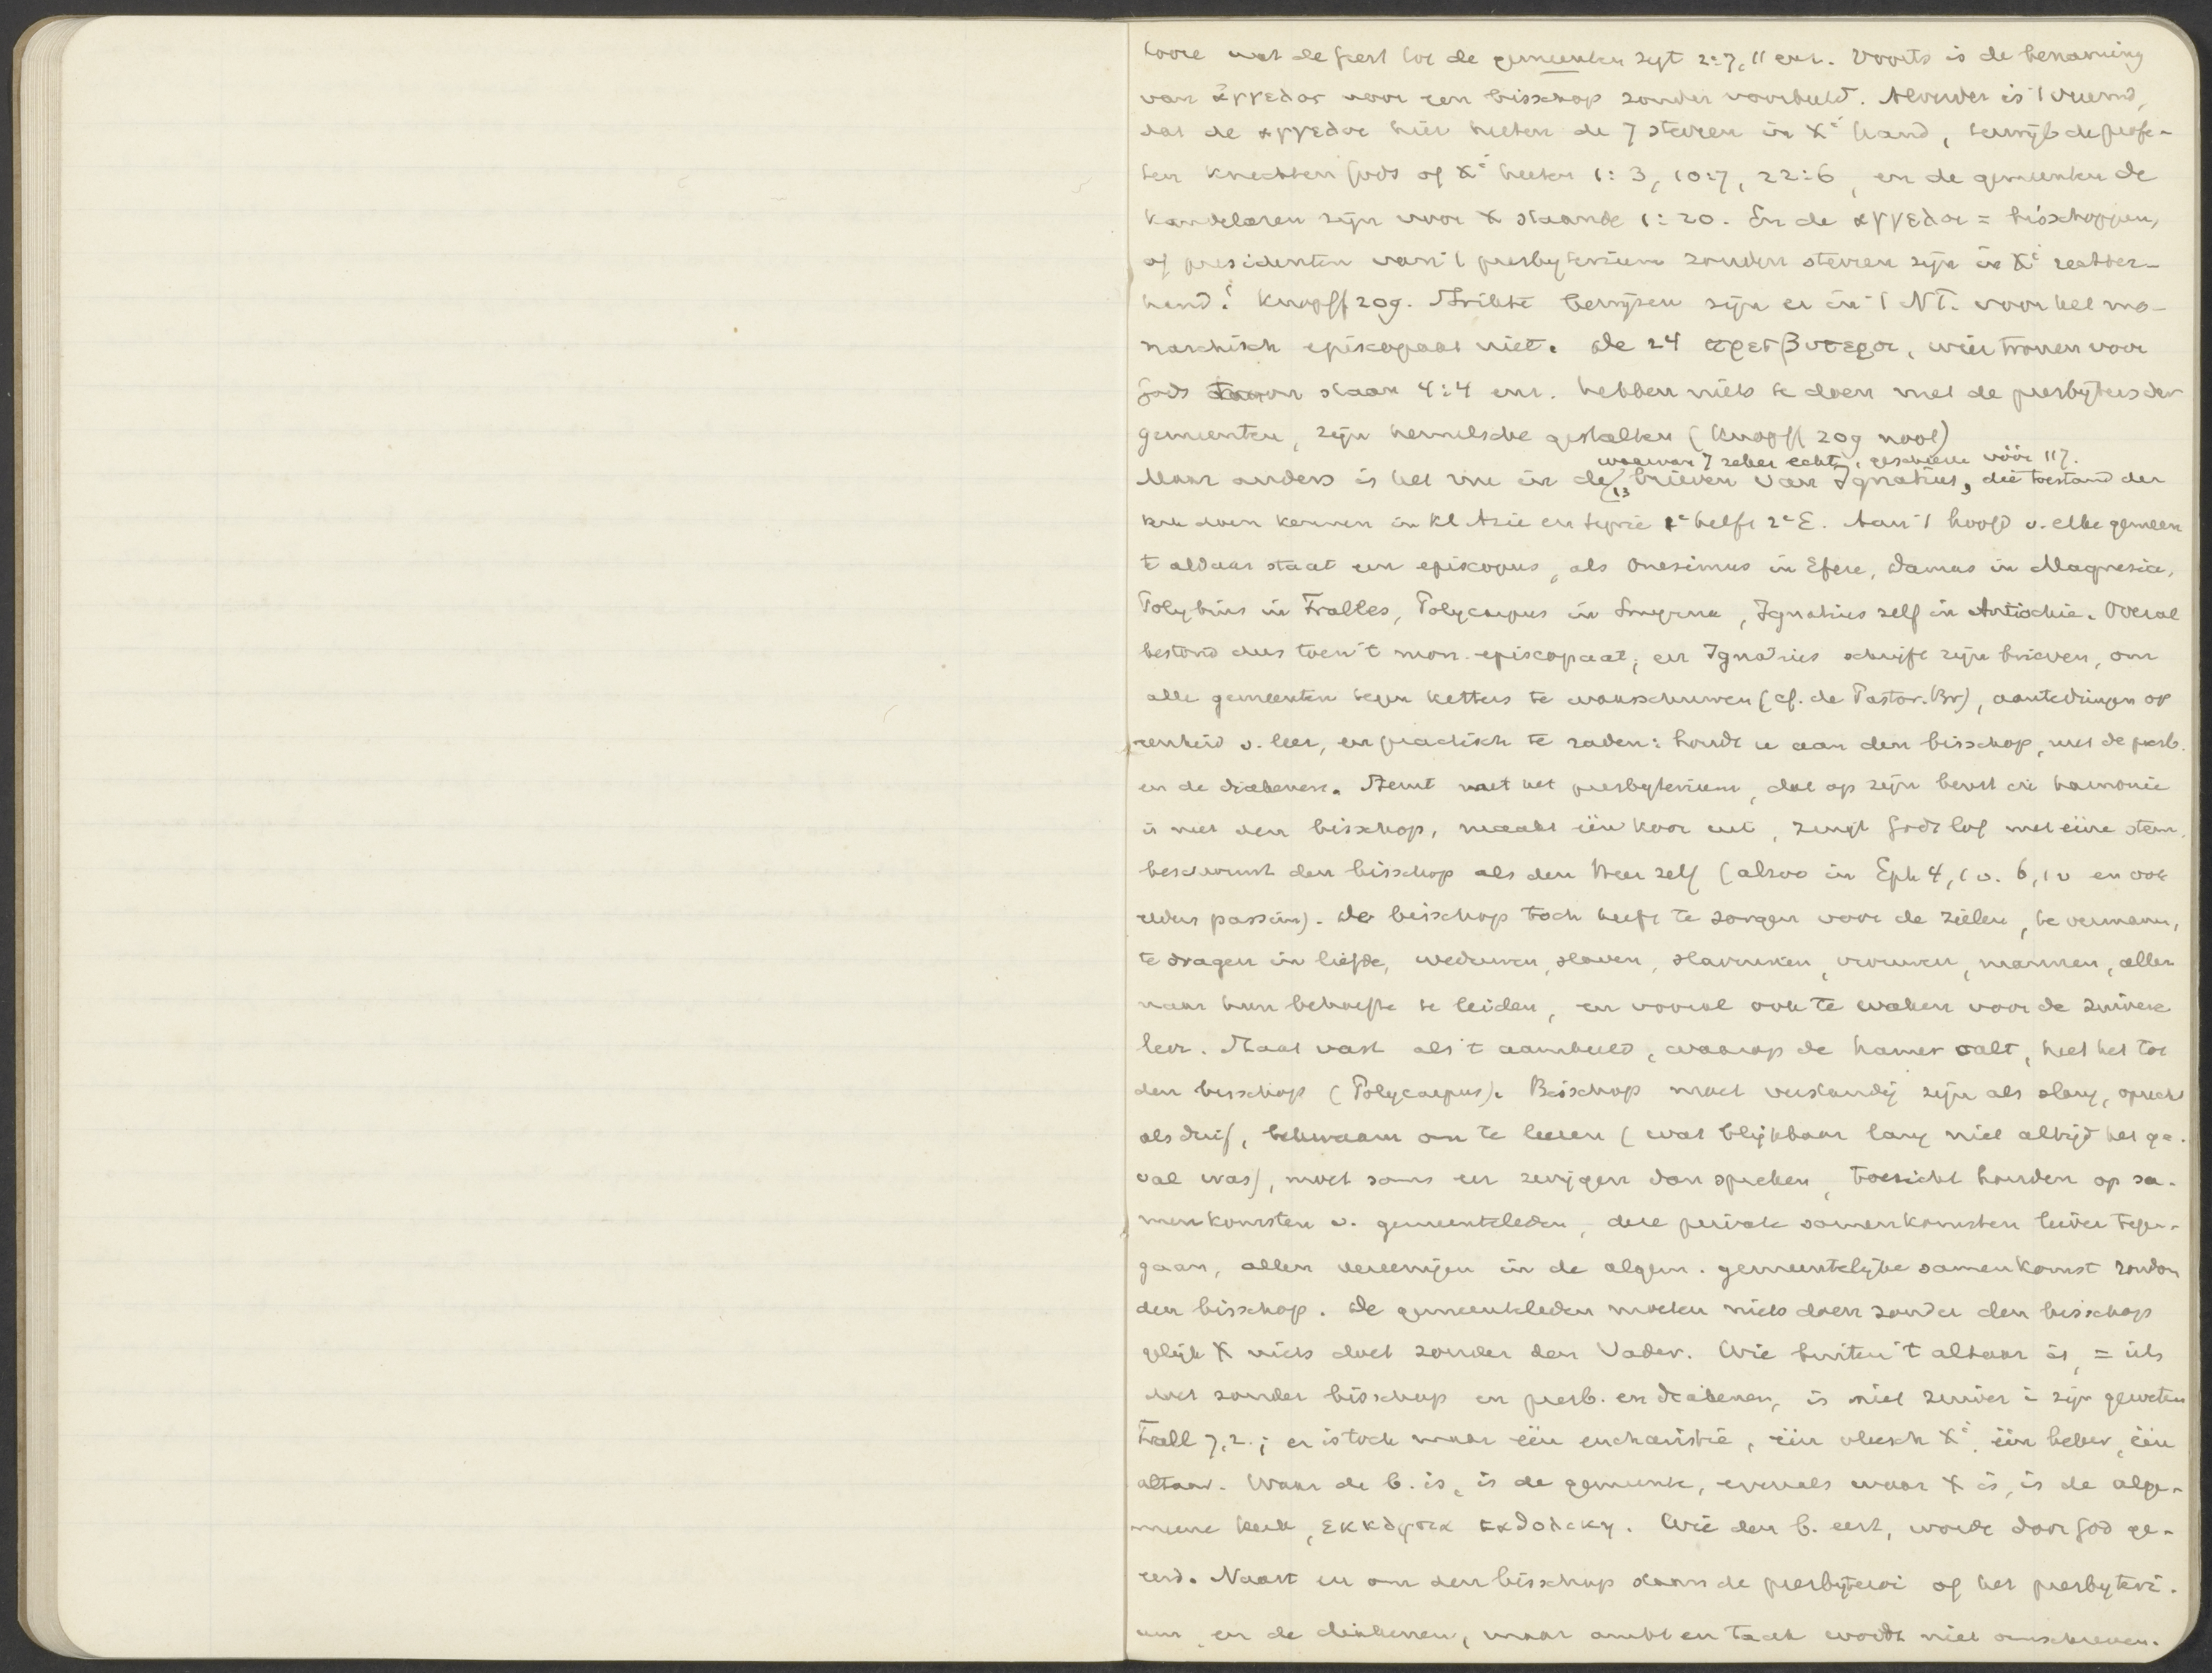 hoore wat de Geest tot de gemeenten zegt 2:7, 11 enz. Voorts is de benaming
van ἄγγελος voor een bisschop zonder voorbeeld. Alverder is 't vreemd,
dat de αγγελοι hier heeten de 7 sterren in Xi hand, terwijl de profe-
ten knechten Gods of Xi heeten 1:3, 10:7, 22:6, en de gemeenten de
kandelaren zijn voor X staande 1:20. En de αγγελοι = bisschoppen,
of presidenten van 't presbyterium zouden sterren zijn in Xi rechter-
hand! Knopff 209. Strikte bewijzen zijn er in 't NT. voor het mo-
narchisch episcopaat niet. De 24 πρεσβυτεροι, wier tronen voor
Gods troon staan 4:4 enz. hebben niets te doen met de presbyters der
gemeenten, zijn hemelsche gestalten (Knopff 209 noot)
waarvan 7 zeker echt, geschreven vóór 117.
Maar anders is het nu in de 13 brieven van Ignatius, die toestand der
kerk doen kennen in Kl Azie en Syrie 1e helft 2e E. Aan 't hoofd v. elke gemeen
te aldaar staat een episcopus, als Onesimus in Efeze, Damas in Magnesia,
Polybius in Tralles, Polycarpus in Smyrna, Ignatius zelf in Antiochie. Overal
bestond dus toen 't mon. episcopaat; en Ignatius schrijft zijn brieven, om
alle gemeenten tegen ketters te waarschuwen (cf. de Pastor. Br), aantedringen op
eenheid v. leer, en practisch te raden: houdt u aan den bisschop, met de presb.
en de diakenen. Stemt met het presbyterium, dat op zijn beurt in harmonie
is met den bisschop, maakt één koor uit, zingt Gods lof met ééne stem,
beschouwt den bisschop als den Heer zelf (alzoo in Eph 4, 1 v. 6, 1 v en ook
elders passim). De bisschop toch heeft te zorgen voor de zielen, te vermanen,
te dragen in liefde, weduwen, slaven, slavinnen, vrouwen, mannen, allen
naar hun behoefte te leiden, en vooral ook te waken voor de zuivere
leer. Staat vast als 't aambeeld, waarop de hamer valt, heet het tot
den bisschop (Polycarpus). Bisschop moet verstandig zijn als slang, oprecht
als duif, bekwaam om te leeren (wat blijkbaar lang niet altijd het ge-
val was), moet soms eer zwijgen dan spreken, toezicht houden op sa-
menkomsten v. gemeenteleden, deze private samenkomsten liever tegen-
gaan, allen vereenigen in de algem. gemeentelijke samenkomst rondom
den bisschop. De gemeenteleden moeten niets doen zonder den bisschop
gelijk X niets doet zonder den Vader. Wie buiten 't altaar is, = iets
doet zonder bisschop en presb. en diakenen, is niet zuiver in zijn geweten
Trall 7,2.; er is toch maar één eucharistie, één vleesch Xi, één beker, één
altaar. Waar de b. is, is de gemeente, evenals waar X is, is de alge-
meene kerk, εκκλησια καθολικη. Wie den b. eert, wordt door God ge-
eerd. Naast en om den bisschop staan de presbyteroi of het presbyteri-
um en de diakenen, maar ambt en taak wordt niet omschreven.